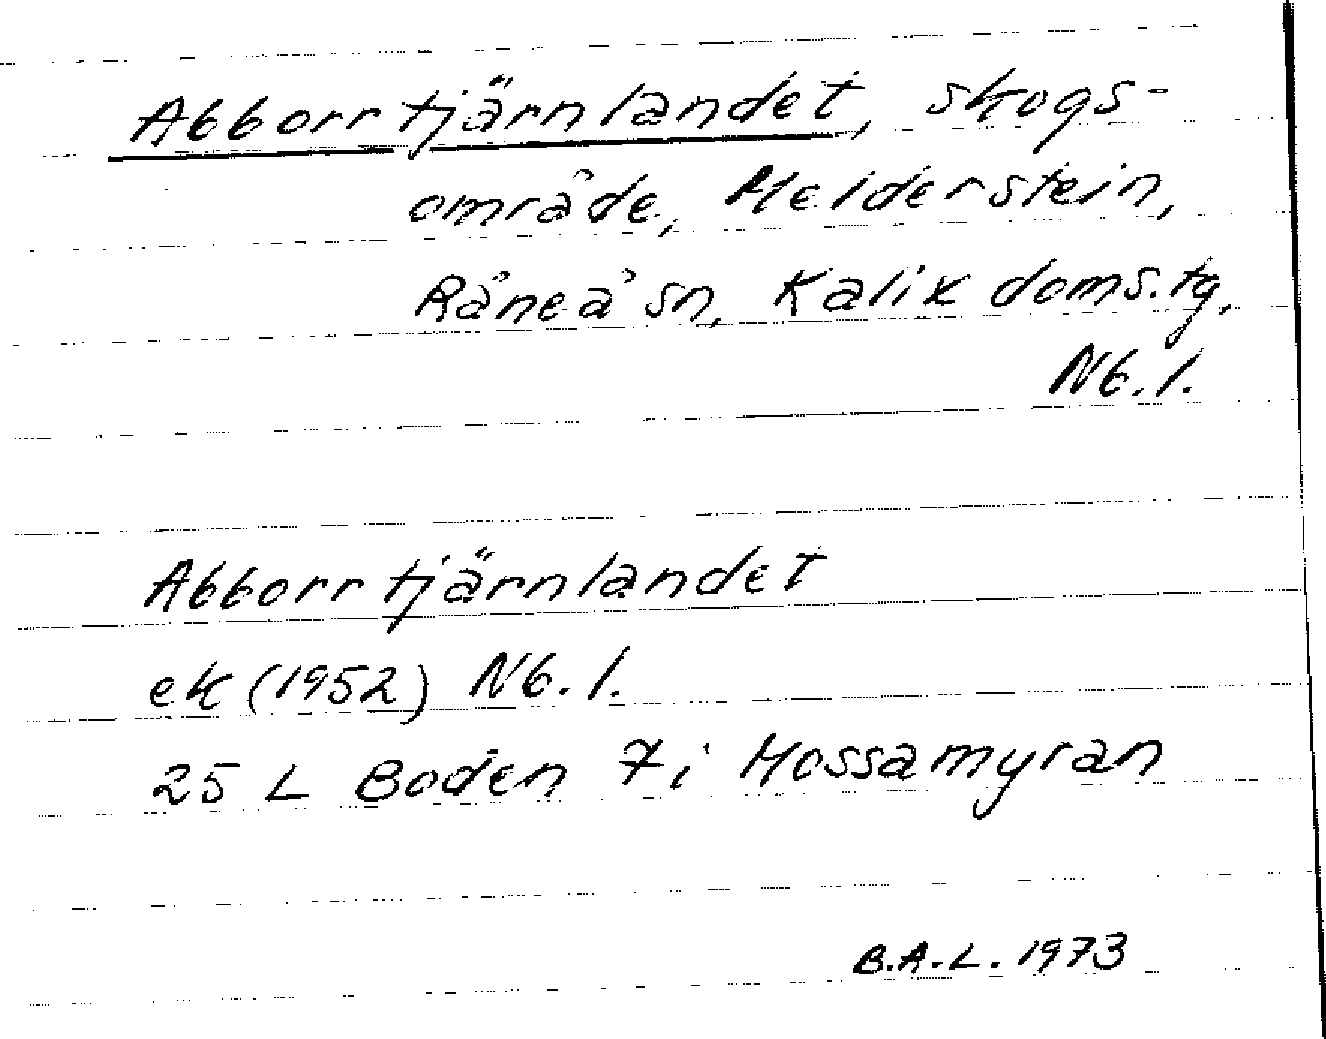 Abborrtjärnlandet, skogs-
område, Melderstein,
Råneå sn, Kalix doms.tg,
Nb.l.
Abborrtjärnlandet
ek (1952) Nb.l.
25 L Boden 7i Mossamyran
B.A.L. 1973